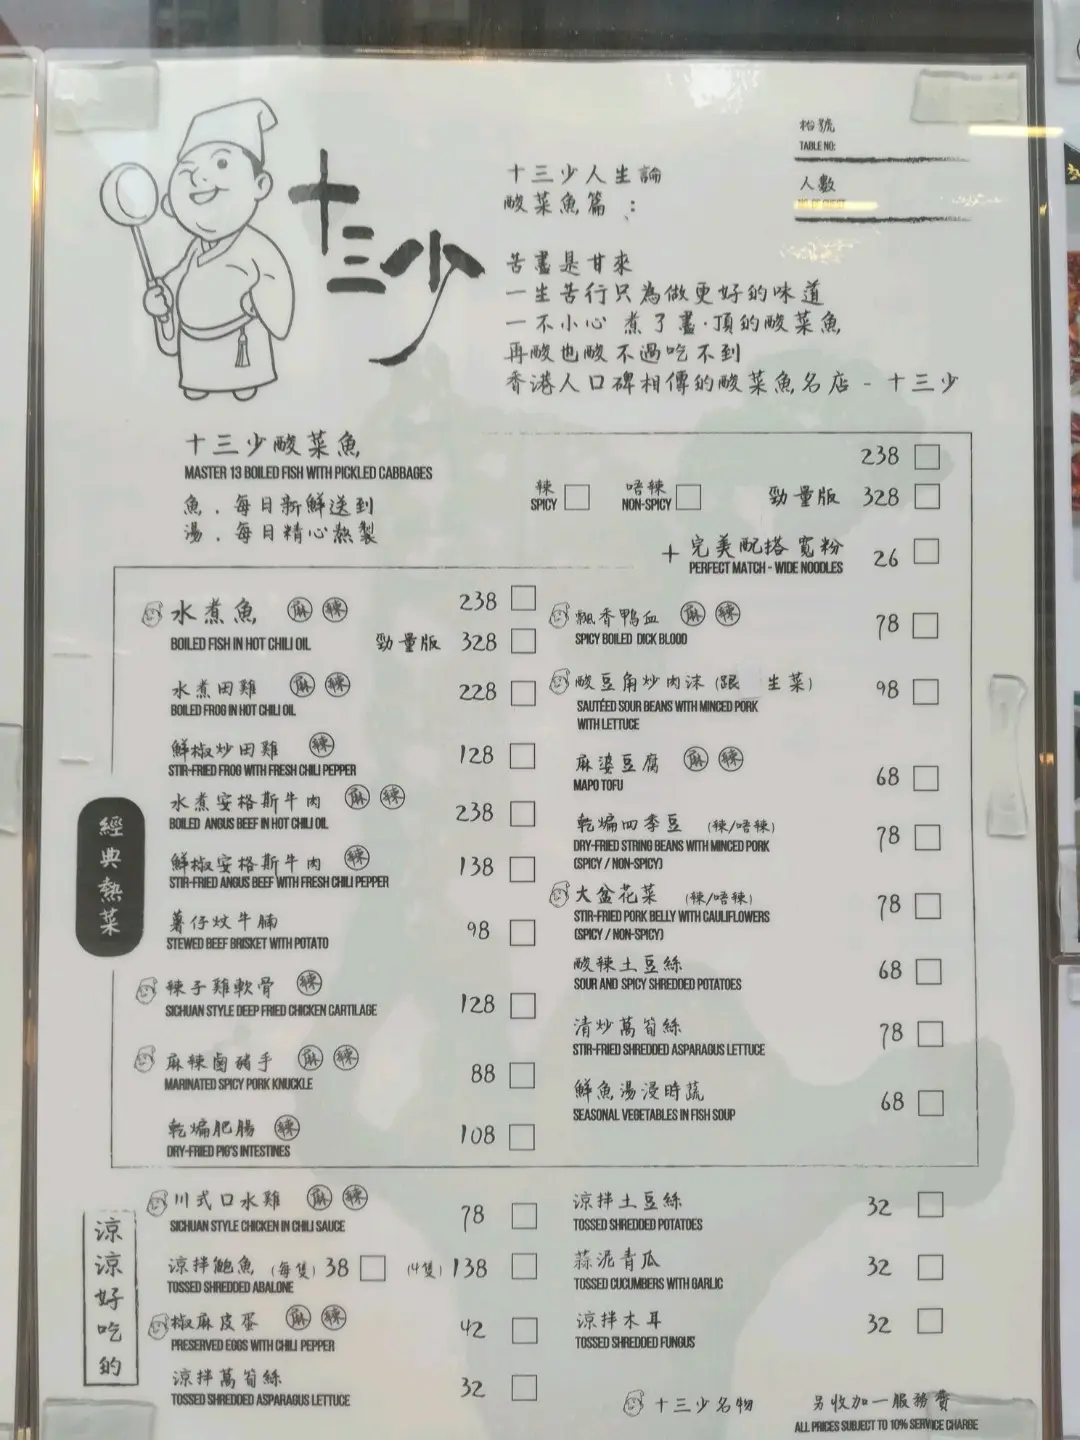 十三少
十三少人生論
酸菜魚篇：
枱號
TABLE NO:
人數
NO. OF GUEST
苦盡是甘來
一生苦行只為做更好的味道
一不小心 煮了盡·頂的酸菜魚
再酸也酸不過吃不到
香港人口碑相傳的酸菜魚名店 - 十三少
十三少酸菜魚
MASTER 13 BOILED FISH WITH PICKLED CABBAGES
魚．每日新鮮送到
湯．每日精心熬製
238
辣 SPICY
唔辣 NON-SPICY
勁量版 328
+ 完美配搭寬粉 26
PERFECT MATCH - WIDE NOODLES
經典熱菜
水煮魚 麻 辣 238
BOILED FISH IN HOT CHILI OIL 勁量版 328
水煮田雞 麻 辣 228
BOILED FROG IN HOT CHILI OIL
鮮椒炒田雞 辣 128
STIR-FRIED FROG WITH FRESH CHILI PEPPER
水煮安格斯牛肉 麻 辣 238
BOILED ANGUS BEEF IN HOT CHILI OIL
鮮椒安格斯牛肉 辣 138
STIR-FRIED ANGUS BEEF WITH FRESH CHILI PEPPER
薯仔炆牛腩 98
STEWED BEEF BRISKET WITH POTATO
辣子雞軟骨 辣 128
SICHUAN STYLE DEEP FRIED CHICKEN CARTILAGE
麻辣鹵豬手 麻 辣 88
MARINATED SPICY PORK KNUCKLE
乾煸肥腸 辣 108
DRY-FRIED PIG'S INTESTINES
飄香鴨血 麻 辣 78
SPICY BOILED DICK BLOOD
酸豆角炒肉沫 (跟 生菜) 98
SAUTÉED SOUR BEANS WITH MINCED PORK
WITH LETTUCE
麻婆豆腐 麻 辣 68
MAPO TOFU
乾煸四季豆 (辣/唔辣) 78
DRY-FRIED STRING BEANS WITH MINCED PORK
(SPICY / NON-SPICY)
大盆花菜 (辣/唔辣) 78
STIR-FRIED PORK BELLY WITH CAULIFLOWERS
(SPICY / NON-SPICY)
酸辣土豆絲 68
SOUR AND SPICY SHREDDED POTATOES
清炒萵筍絲 78
STIR-FRIED SHREDDED ASPARAGUS LETTUCE
鮮魚湯浸時蔬 68
SEASONAL VEGETABLES IN FISH SOUP
涼涼好吃的
川式口水雞 麻 辣 78
SICHUAN STYLE CHICKEN IN CHILI SAUCE
涼拌鮑魚 (每隻) 38 (4隻) 138
TOSSED SHREDDED ABALONE
椒麻皮蛋 麻 辣 42
PRESERVED EGGS WITH CHILI PEPPER
涼拌萵筍絲 32
TOSSED SHREDDED ASPARAGUS LETTUCE
涼拌土豆絲 32
TOSSED SHREDDED POTATOES
蒜泥青瓜 32
TOSSED CUCUMBERS WITH GARLIC
涼拌木耳 32
TOSSED SHREDDED FUNGUS
十三少名物
另收加一服務費
ALL PRICES SUBJECT TO 10% SERVICE CHARGE